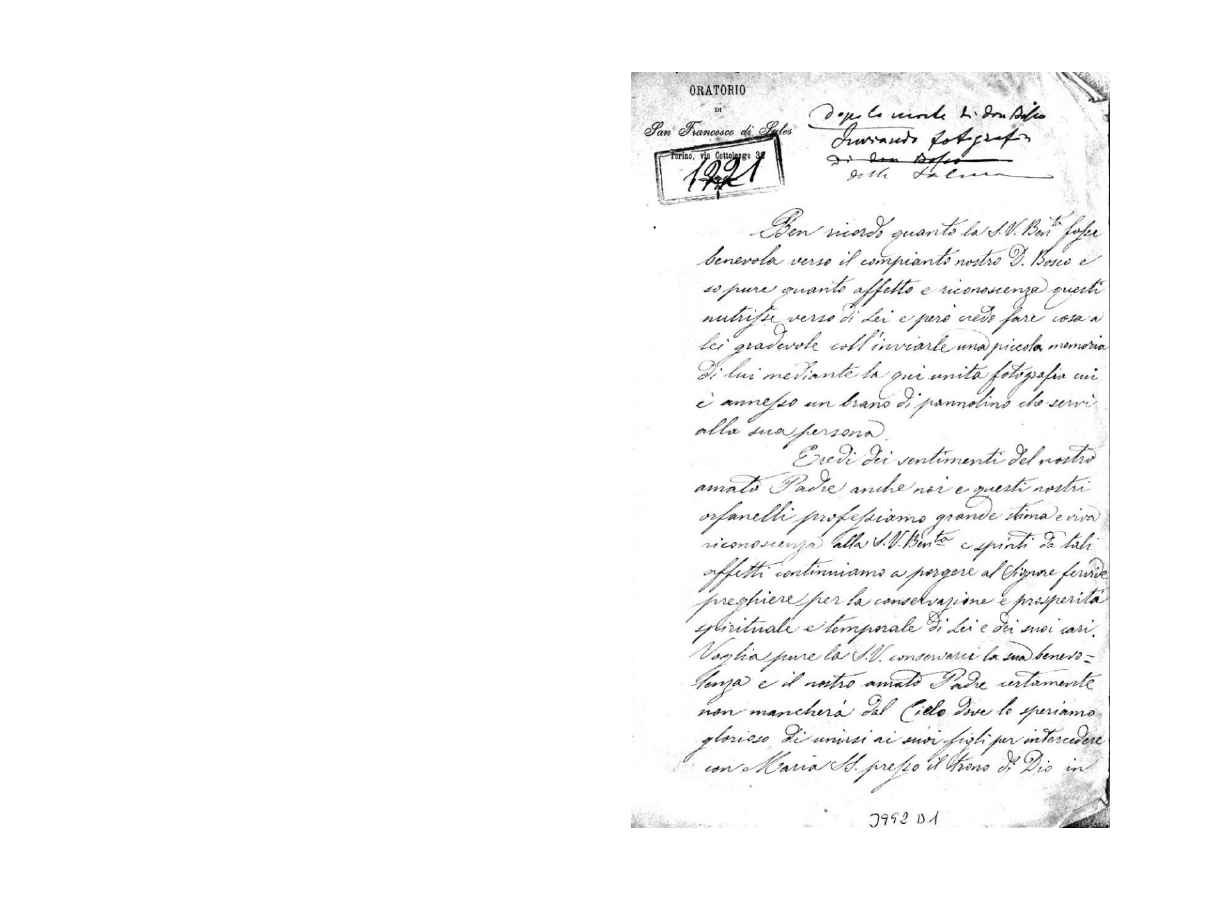 ORATORIO
DI
San Francesco di Sales
Torino, via Cottolengo 32
1221
Dopo la morte di don Bosco
Inviando fotografia
di don Bosco
della Salma
Ben ricordo quanto la S.V. Benta fosse
benevola verso il compianto nostro D. Bosco e
so pure quanto affetto e riconoscenza questi
nutrisse verso di Lei e però credo fare cosa a
lei gradevole coll'inviarle una piccola memoria
di lui mediante la qui unita fotografia cui
è annesso un brano di pannolino che servì
alla sua persona.
Eredi dei sentimenti del nostro
amato Padre anche noi e questi nostri
orfanelli professiamo grande stima e viva
riconoscenza alla S.V. Benta e spinti da tali
affetti continuiamo a porgere al Signore fervide
preghiere per la conservazione e prosperità
spirituale e temporale di Lei e dei suoi cari.
Voglia pure la S.V. conservarci la sua benevo=
lenza e il nostro amato Padre certamente
non mancherà dal Cielo dove lo speriamo
glorioso di unirsi ai suoi figli per intercedere
con Maria SS. presso il trono di Dio in
3992 D1